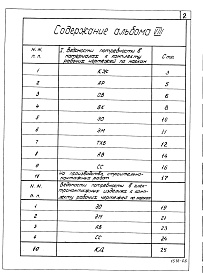 2
Содержание альбома VIII
N.N. п.п.
I. Ведомости потребности в материалах к комплекту рабочих чертежей по маркам
Стр.
1 КЖ 3
2 АР 5
3 ОВ 6
4 ВК 8
5 ЭО 10
6 ЭМ 11
7 ТХВ 12
8 АВ 14
9 СС 16
на производство строительно-монтажных работ 17
N.N. п.п.
Ведомости потребности в электромонтажных изделиях к комплекту рабочих чертежей по маркам
ЭО 19
ЭМ 21
АВ 23
СС 24
10 КД 25